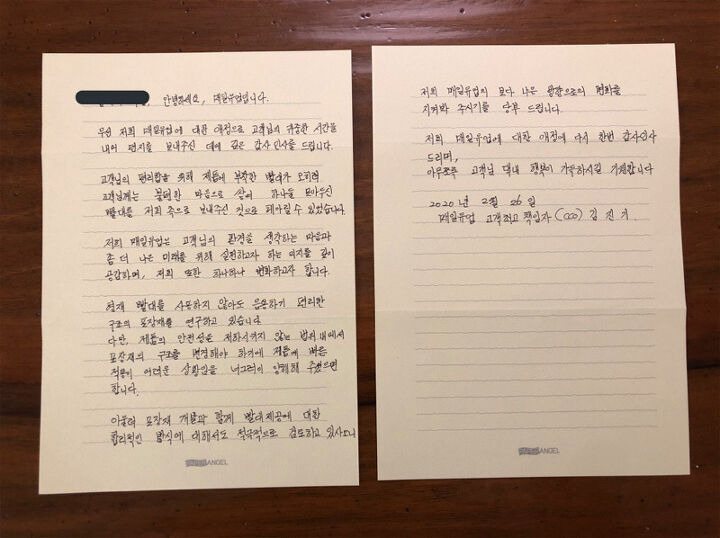 안녕하세요, 매일유업입니다.
우선 저희 매일유업에 대한 애정으로 고객님의 귀중한 시간을
내어 편지를 보내주신 데에 깊은 감사 인사를 드립니다.
고객님의 편리함을 위해 제품에 부착한 빨대가 오히려
고객님께는 불편한 마음으로 쌓여 하나둘 모아두신
빨대를 저희 쪽으로 보내주신 것으로 헤아릴 수 있었습니다.
저희 매일유업은 고객님의 환경을 생각하는 마음과
좀 더 나은 미래를 위해 실천하고자 하는 의지를 깊이
공감하며, 저희 또한 하나하나 변화하고자 합니다.
현재 빨대를 사용하지 않아도 음용하기 편리한
구조의 포장재를 연구하고 있습니다.
다만, 제품의 안전성을 저하시키지 않는 범위 내에서
포장재의 구조를 변경해야 하기에 제품에 빠른
적용이 어려운 상황임을 너그러이 양해해 주셨으면
합니다.
아울러 포장재 개발과 함께 빨대 제공에 대한
합리적인 방식에 대해서도 적극적으로 검토하고 있사오니
ANGEL
저희 매일유업의 보다 나은 방향으로의 변화를
지켜봐 주시기를 당부 드립니다.
저희 매일유업에 대한 애정에 다시 한번 감사인사
드리며,
아무쪼록 고객님 댁내 행복이 가득하시길 기원합니다
2020년 2월 26일
매일유업 고객최고책임자 (CCO) 김진기.
ANGEL